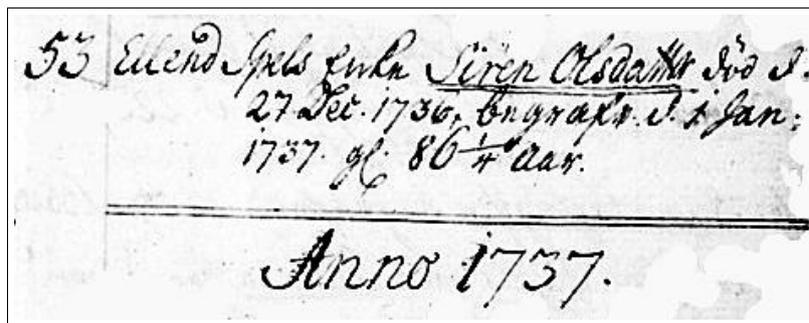 53 Ellend Spels Enke Siren Olsdatter död d.
27 Dec. 1736, begrafv. d. 1 Jan:
1737. gl. 86 1/4 Aar.
Anno 1737.